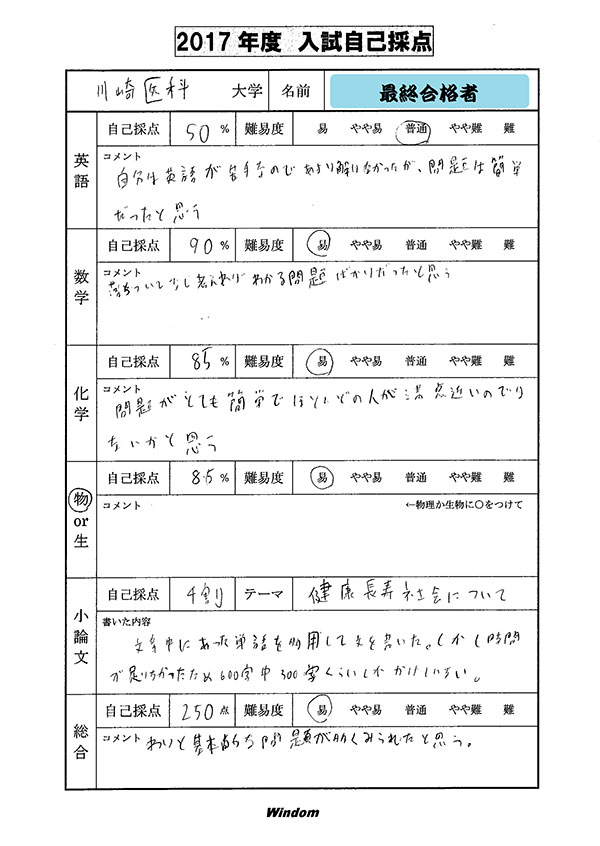 2017 年度 入試自己採点
川崎医科 大学 名前 最終合格者
英語
自己採点 50 % 難易度 易 やや易 普通 やや難 難
コメント
自分は英語が苦手なのであまり解けなかったが、問題は簡単
だったと思う
数学
自己採点 90 % 難易度 易 やや易 普通 やや難 難
コメント
落ちついて少し考えれば わかる問題 ばかりだったと思う
化学
自己採点 85 % 難易度 易 やや易 普通 やや難 難
コメント
問題がとても簡単でほとんどの人が満点近いのでは
ないかと思う
物or生
自己採点 85 % 難易度 易 やや易 普通 やや難 難
コメント ←物理か生物に〇をつけて
小論文
自己採点 4割 テーマ 健康長寿社会について
書いた内容
文章中にあった単語を多用して文を書いた。しかし時間
が足りなかったため600字中300字くらいしかかけていない。
総合
自己採点 250 点 難易度 易 やや易 普通 やや難 難
コメント わりと基本的な問題が多くみられたと思う。
Windom